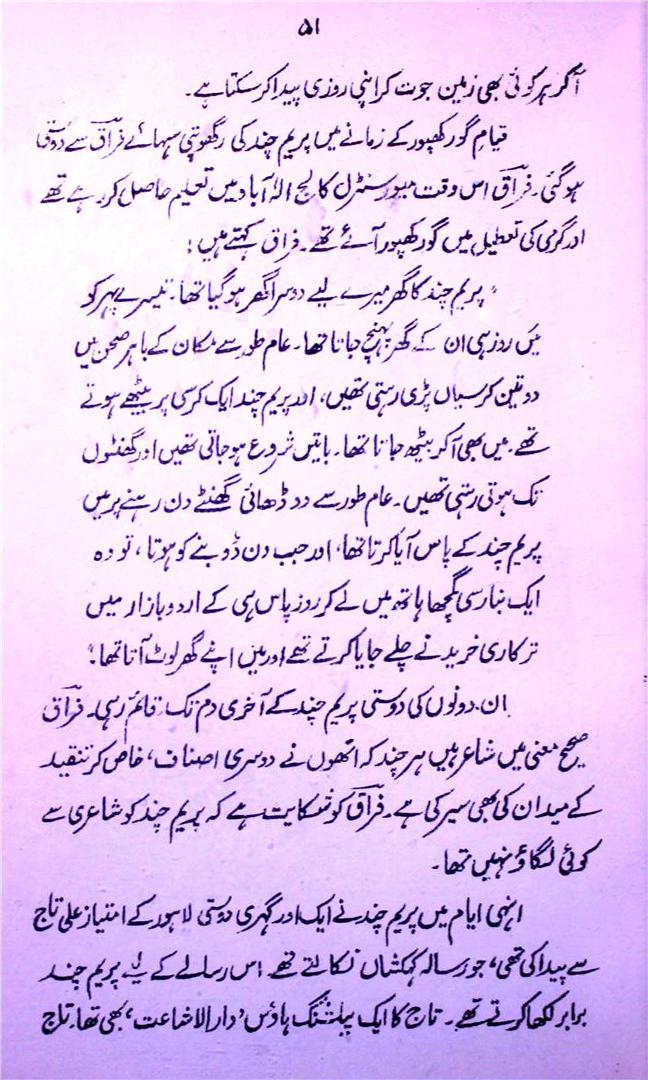 ۵۱
آکر ہر کوئی بھی زمین جوت کر اپنی روزی پیدا کر سکتا ہے۔
قیامِ گورکھپور کے زمانے میں پریم چند کی رگھوپتی سہائے فراقؔ سے دوستی
ہوگئی۔ فراقؔ اس وقت میور سنٹرل کالج الہٰ آباد میں تعلیم حاصل کر رہے تھے
اور گرمی کی تعطیل میں گورکھپور آئے تھے۔ فراق کہتے ہیں:
"پریم چند کا گھر میرے لیے دوسرا گھر ہوگیا تھا۔ تیسرے پہر کو
میں روز ہی ان کے گھر پہنچ جاتا تھا۔ عام طور سے مکان کے باہر صحن میں
دو تین کرسیاں پڑی رہتی تھیں، اور پریم چند ایک کرسی پر بیٹھے ہوتے
تھے۔ میں بھی آکر بیٹھ جاتا تھا۔ باتیں شروع ہو جاتی تھیں اور گھنٹوں
تک ہوتی رہتی تھیں۔ عام طور سے دو ڈھائی گھنٹے دن رہنے پر میں
پریم چند کے پاس آیا کرتا تھا، اور جب دن ڈوبنے کو ہوتا، تو وہ
ایک بنارسی گمچھا ہاتھ میں لے کر روز پاس ہی کے اردو بازار میں
ترکاری خریدنے چلے جایا کرتے تھے اور میں اپنے گھر لوٹ آتا تھا۔"
ان دونوں کی دوستی پریم چند کے آخری دم تک قائم رہی۔ فراقؔ
صحیح معنی میں شاعر ہیں ہر چند کہ انھوں نے دوسری اصناف، خاص کر تنقید
کے میدان کی بھی سیر کی ہے۔ فراقؔ کو شکایت ہے کہ پریم چند کو شاعری سے
کوئی لگاؤ نہیں تھا۔
انہی ایام میں پریم چند نے ایک اور گہری دوستی لاہور کے امتیاز علی تاج
سے پیدا کی تھی، جو رسالہ کہکشاں نکالتے تھے۔ اس رسالے کے لیے پریم چند
برابر لکھا کرتے تھے۔ تاج کا ایک پبلشنگ ہاؤس 'دارالاشاعت' بھی تھا۔ تاج